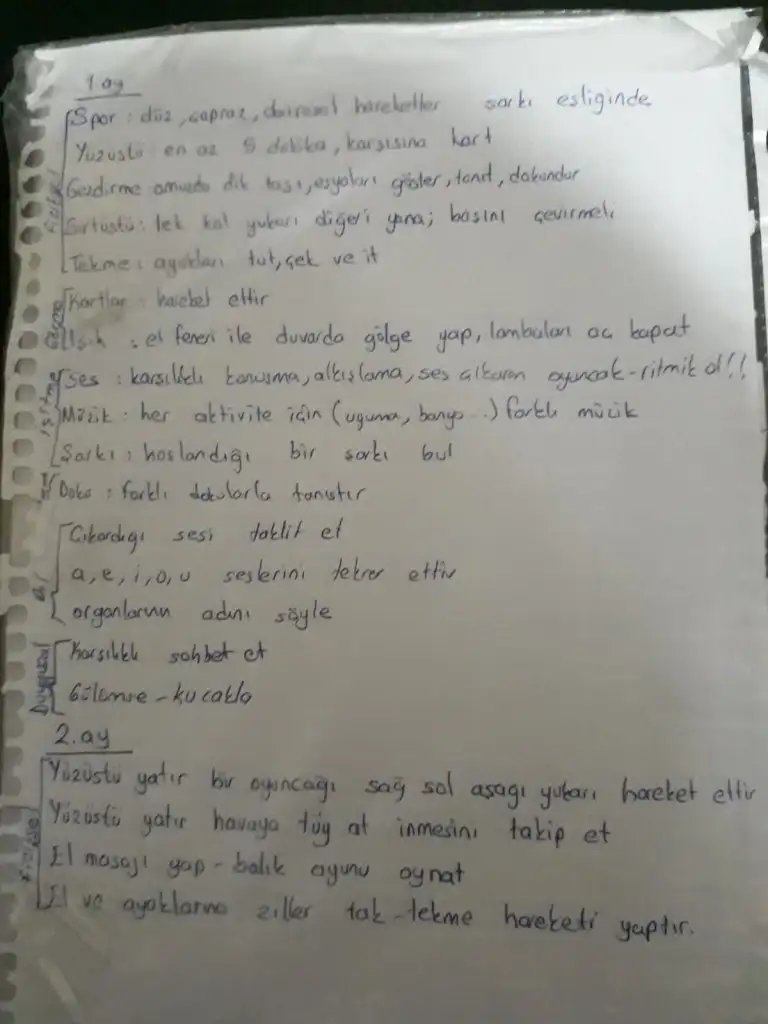 1 ay
Spor : düz, çapraz, dairesel hareketler şarkı eşliğinde
Yüzüstü en az 5 dakika, karşısına kart
Gezdirme omuzda dik taşı, eşyaları göster, tanıt, dokundur
Sırtüstü : tek kol yukarı diğeri yana; başını çevirmeli
Tekme : ayakları tut, çek ve it
Fiziksel
Kartlar : hareket ettir
Işık : el feneri ile duvarda gölge yap, lambaları aç kapat
Ses : karşılıklı konuşma, alkışlama, ses çıkaran oyuncak - ritmik ol!!
Müzik : her aktivite için (uyuma, banyo...) farklı müzik
Şarkı : hoşlandığı bir şarkı bul
işitme
Doku : farklı dokularla tanıştır
Çıkardığı sesi taklit et
a, e, i, o, u seslerini tekrar ettir
organlarının adını söyle
Karşılıklı sohbet et
Gülümse - kucakla
Duygusal
2. ay
Yüzüstü yatır bir oyuncağı sağ sol aşağı yukarı hareket ettir
Yüzüstü yatır havaya tüy at inmesini takip et
El masajı yap - balık oyunu oynat
El ve ayaklarına ziller tak - tekme hareketi yaptır.
Fiziksel